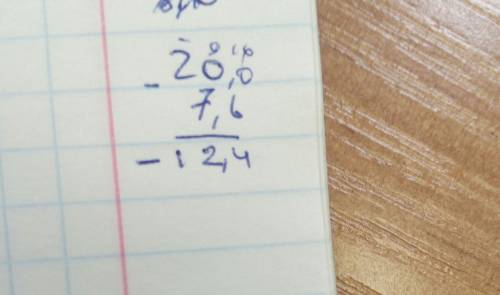 - 20,0
7,6
- 12,4